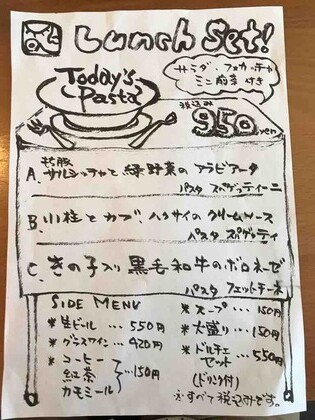 Lunch Set!
サラダ、フォカッチャ
ミニ前菜 付き
Today's
Pasta
税込み
950yen
A. もち豚
サルシッチャと 緑野菜の アラビアータ
パスタ スパゲッティーニ
B. 小柱と カブ、ハクサイの クリームソース
パスタ スパゲッティ
C. きの子入り 黒毛和牛のボロネーゼ
パスタ フェットチーネ
SIDE MENU
*生ビール … 550円
*グラスワイン … 420円
*コーヒー
紅茶 …150円
カモミール
*スープ … 150円
*大盛り … 150円
*ドルチェ
セット … 550円
(ドリンク付)
※すべて税込みです。